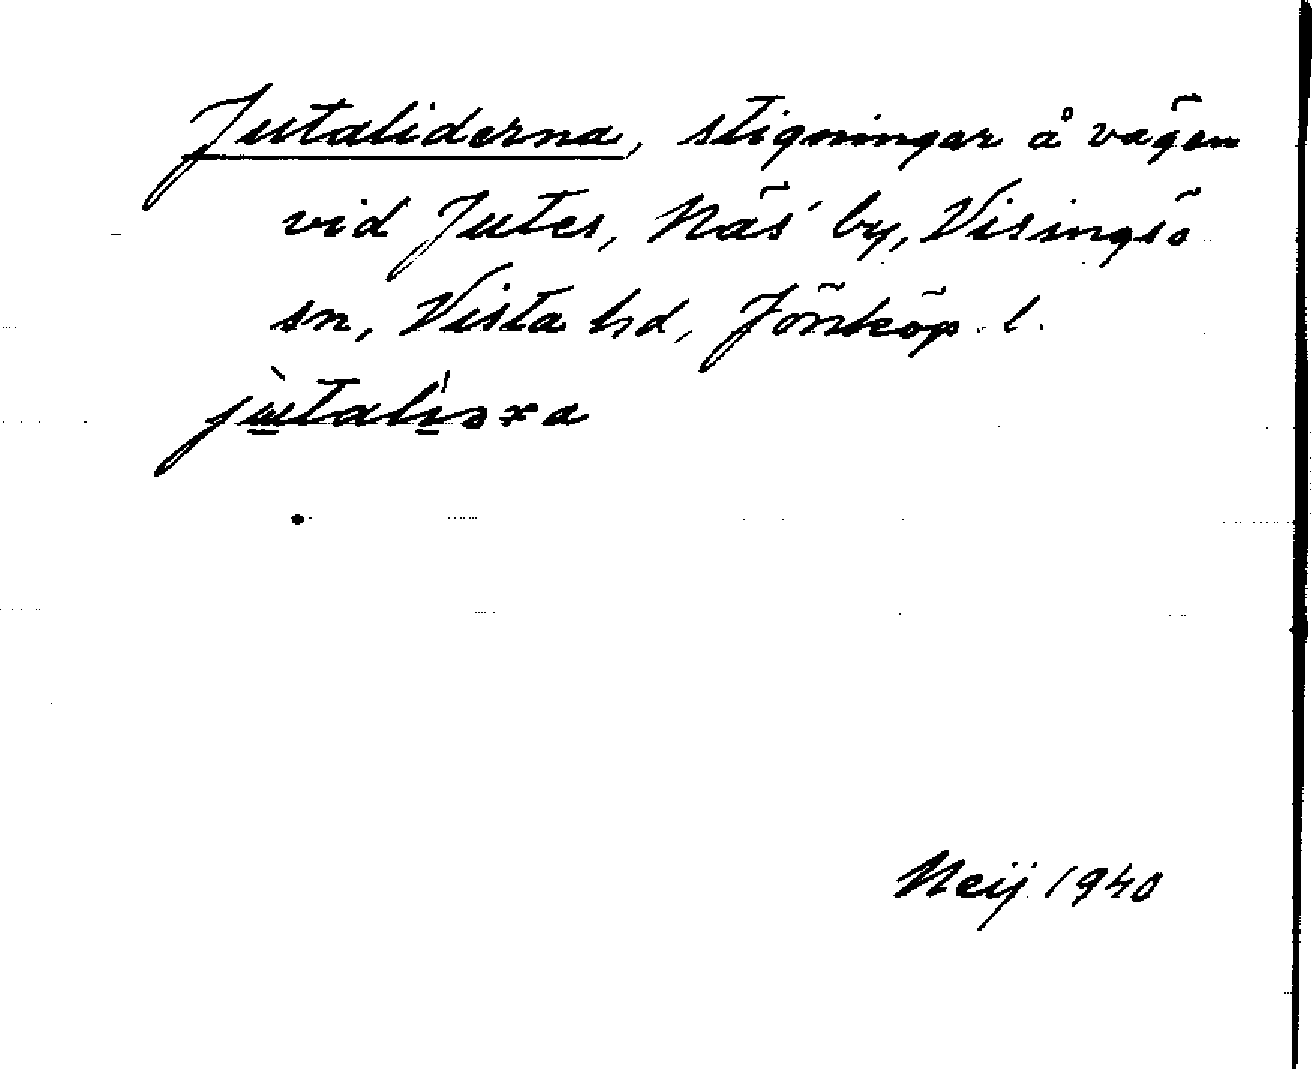 Jutaliderna, stigningar å vägen
vid Jutes, Näs by, Visingsö
sn, Vista hd, Jönköp. l.
Neij 1940